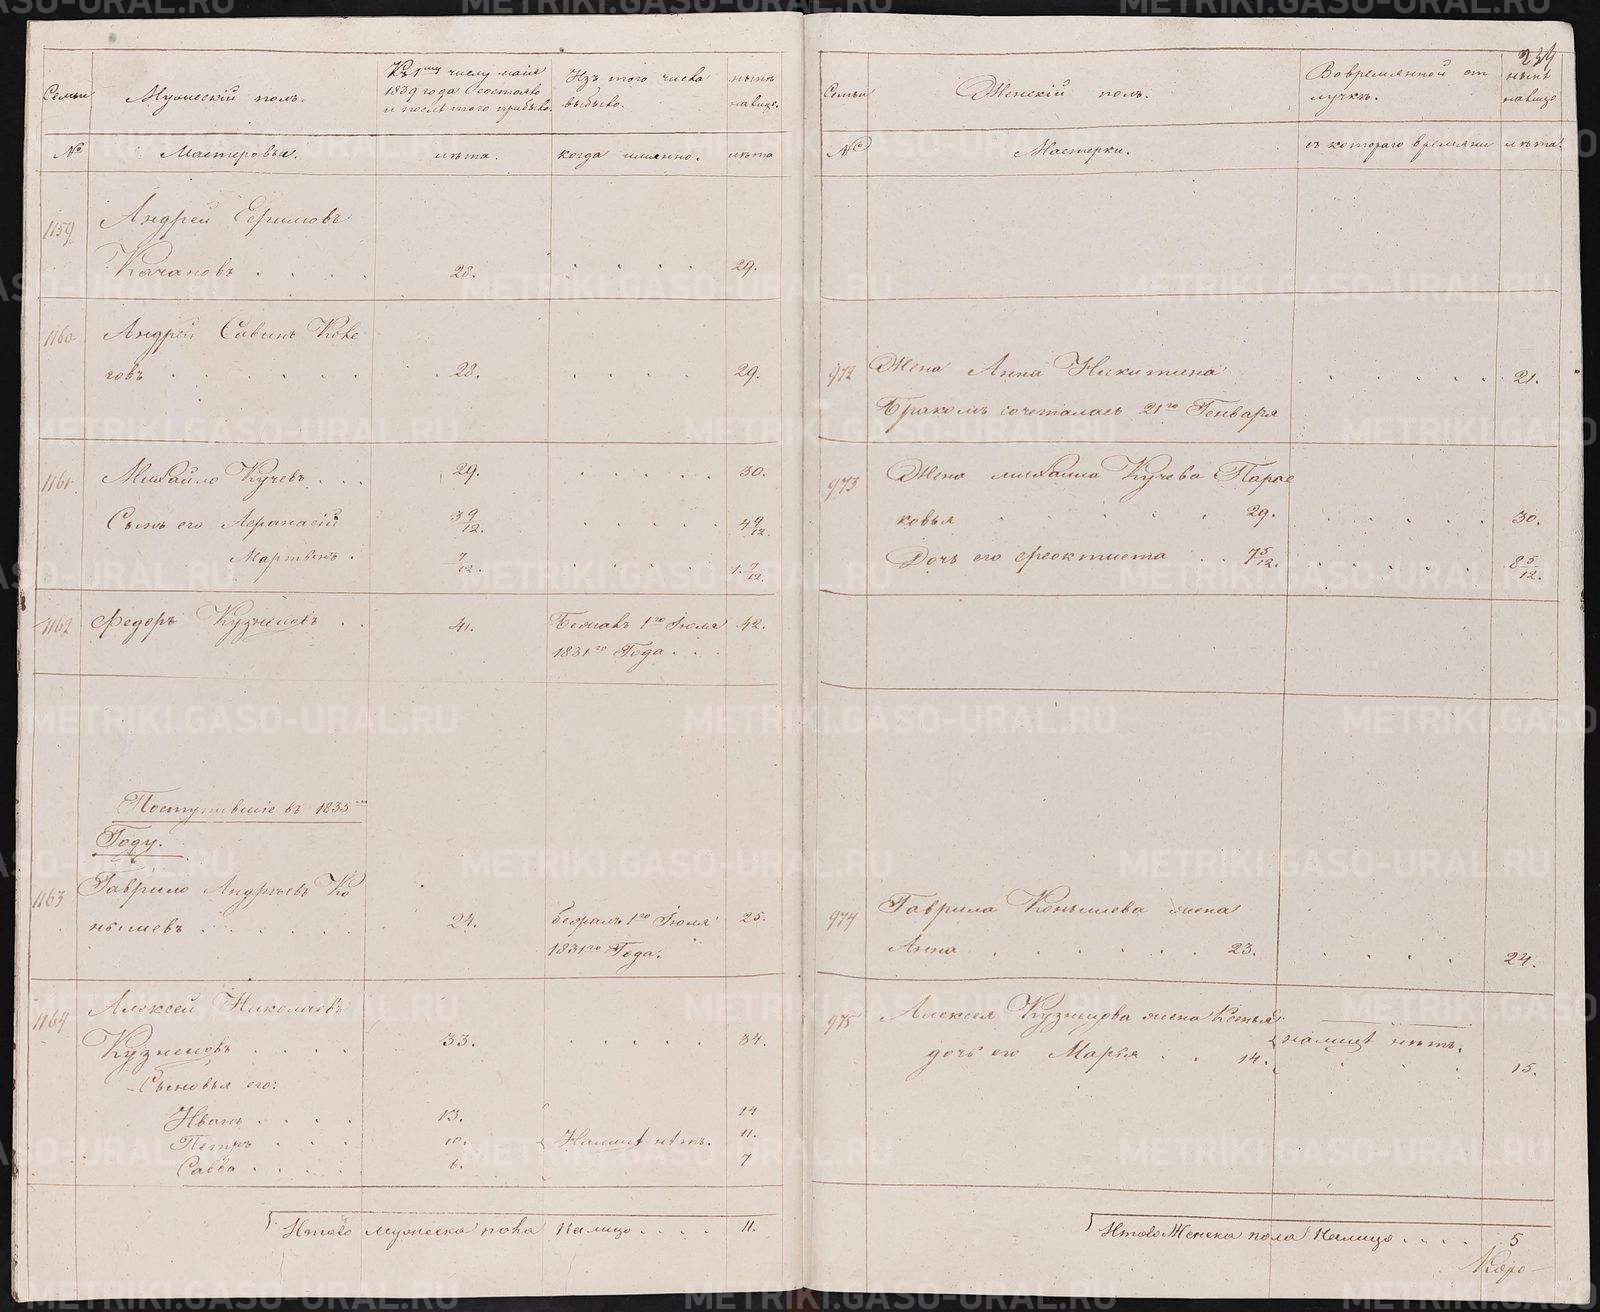 Семьи
Мужескій полъ.
Къ 1му числу майя
1839 года состояло
и послѣ того прибыло.
Изъ того числа
выбыло.
нынѣ
налицо.
№
Мастеровыя.
лѣта.
когда имянно.
лѣта
1159
Андрей Ефимовъ
Качановъ . . . . 28. . . . . 29.
1160
Андрей Савинъ Коке
говъ . . . . . . 28. . . . . 29.
1161
Михайло Кучевъ . . . 29. . . . . 30.
Сынъ его Афанасій 3 9/12. . . . . 4 9/12.
Мартынъ . 7/12. . . . . 1. 7/12.
1162
Федоръ Кузнецовъ . . 41. Бежавъ 1го Июля 42.
1831го Года . .
Поступившіе въ 1835м
Году.
1163
Гаврило Андреевъ Ко
нышевъ . . . . . . 24. 1го Июля 25.
1831го Года.
1164
Алексей Николаевъ
Кузнецовъ . . . . 33. . . . . 34.
Сыновья его:
Иванъ . . . . 13. 14
Петръ . . . 10. Налицо нѣтъ. 11.
Савва . . . . . 6. 7
Итого мужеска пола налицо . . . . 11.
234
Семьи
Женскій полъ.
Вовремянной от
лучкѣ.
нынѣ
налицо
№
Мастерки.
съ котораго времяни
лѣта.
972
Жена Анна Никитина . . . . . 21.
Бракомъ сочеталась 21го Генваря
973
Жена михаила Кучева Парас
ковья . . . . . . 29. . . . . . 30.
Дочь его Феоктиста . . 7 5/12. . . . . . 8 5/12.
974
Гаврила Конышева жена
Анна . . . . . . 23. . . . . 24.
975
Алексея Кузнецова жена Ксенья
налицо нѣтъ.
дочь его Марья . . 14. . . . 15.
Итого Женска пола налицо . . . . 5
Коро-
METRIKI.GASO-URAL.RU